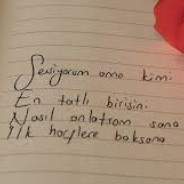 Seviyorum ama kimi
En tatlı birisini
Nasıl anlatsam sana
İlk harflere baksana